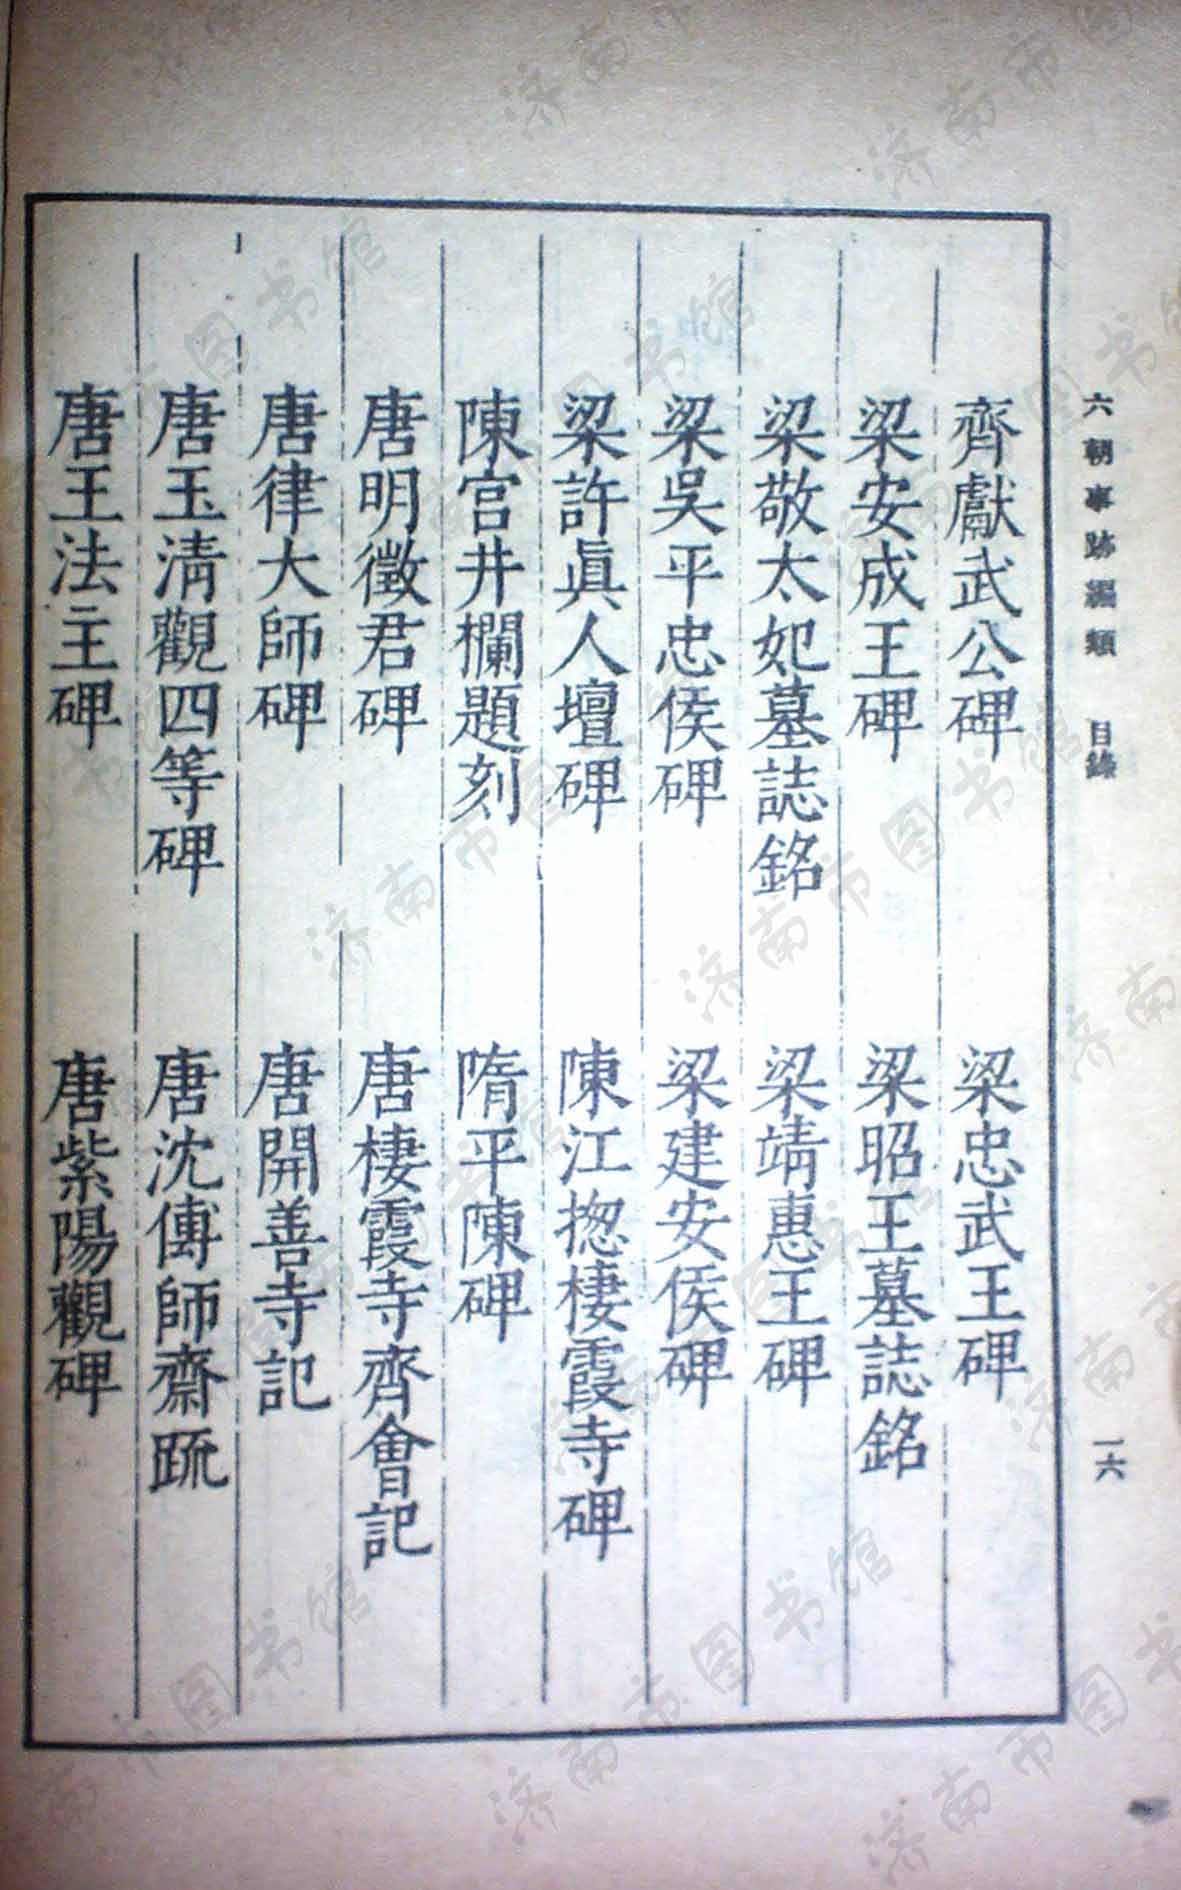 六朝事跡編類　目錄
一六
齊獻武公碑　梁忠武王碑
梁安成王碑　梁昭王墓誌銘
梁敬太妃墓誌銘　梁靖惠王碑
梁吳平忠侯碑　梁建安侯碑
梁許眞人壇碑　陳江揔棲霞寺碑
陳宮井欄題刻　隋平陳碑
唐明徵君碑　唐棲霞寺齊會記
唐律大師碑　唐開善寺記
唐玉淸觀四等碑　唐沈傳師齋䟽
唐王法主碑　唐紫陽觀碑
济南市图书馆